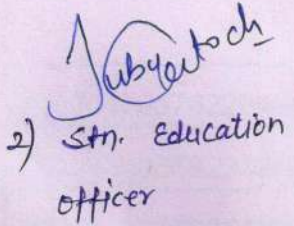 2) Stn. Education
officer